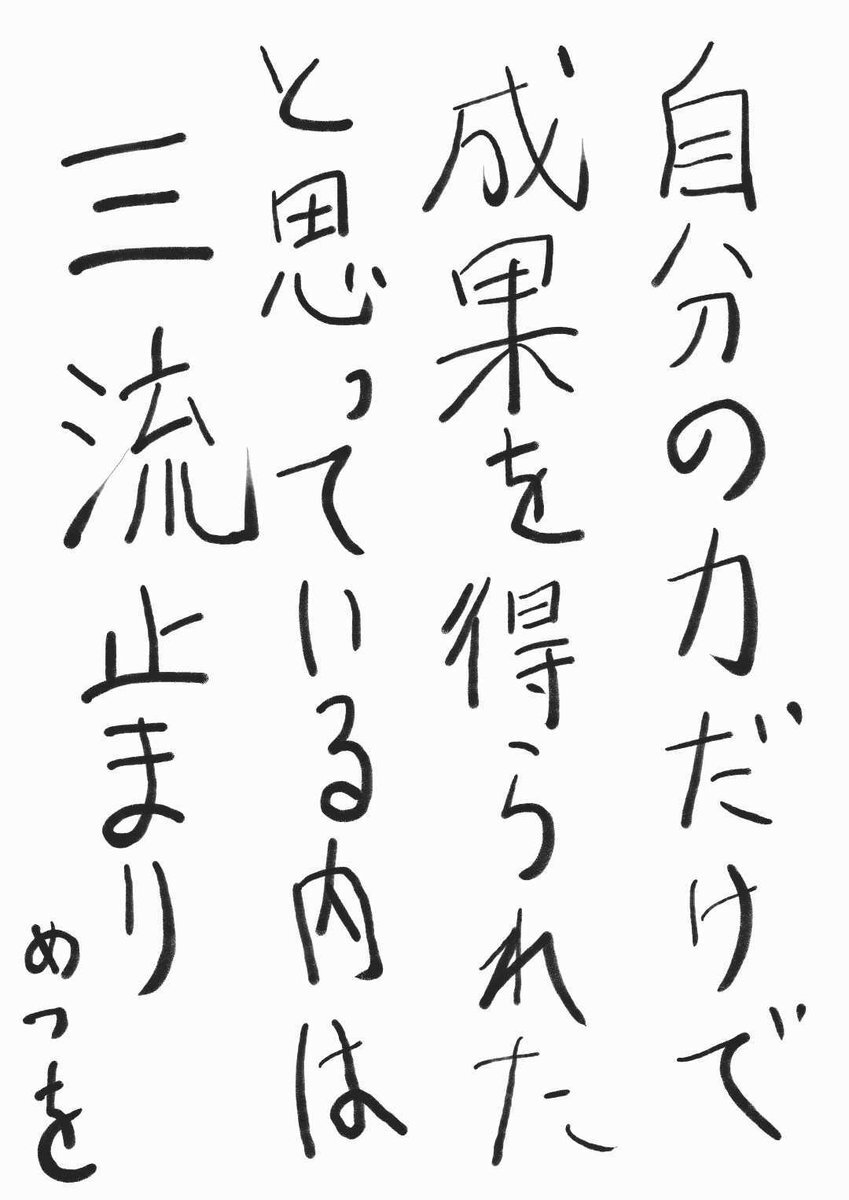 自分の力だけで
成果を得られた
と思っている内は
三流止まり
めつを